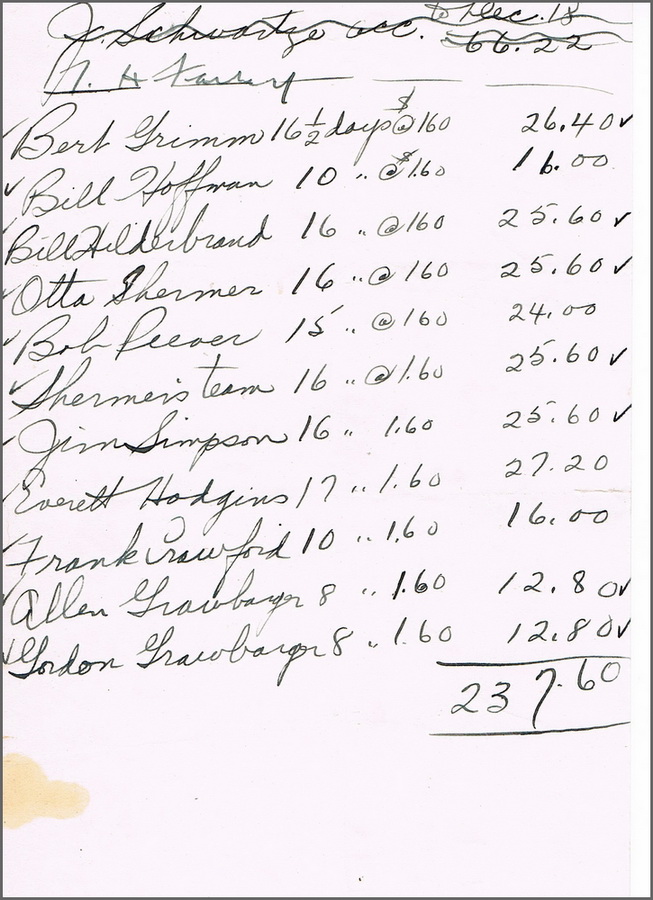 J. Schwartze acc. to Dec. 18
66.22
H
Bert Grimm 16 1/2 days @ $160 26.40 ✓
✓ Bill Hoffman 10 " @ $1.60 16.00
Bill Hilderbrand 16 " @ 160 25.60 ✓
Otta Shermer 16 " @ 160 25.60 ✓
Bob Peever 15 " @ 160 24.00
✓ Shermer's team 16 " @ 1.60 25.60 ✓
Jim Simpson 16 " 1.60 25.60 ✓
Everett Hodgins 17 " 1.60 27.20
Frank Crawford 10 " 1.60 16.00
Allen Grawbarger 8 " 1.60 12.80 ✓
✓ Gordon Grawbarger 8 " 1.60 12.80 ✓
237.60